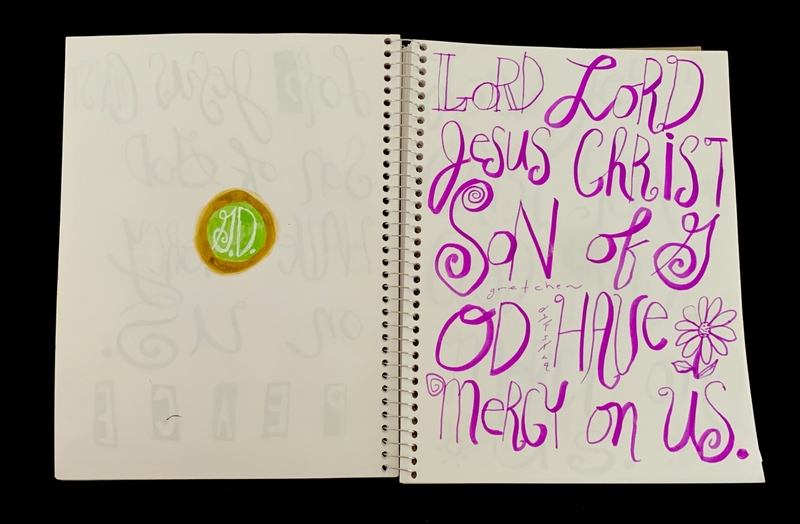 G.D.
LORD LORD
Jesus ChRiST
SON of G
OD HAVe
MeRGY on US.
gretchen